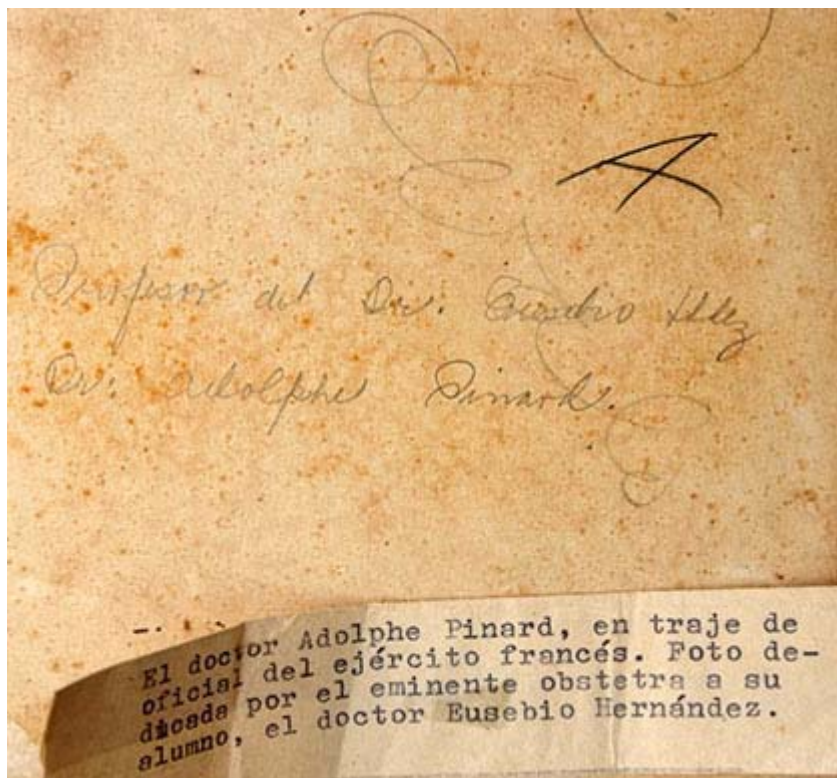 Profesor del Dr. Eusebio Hdez
Dr. Adolphe Pinard.
El doctor Adolphe Pinard, en traje de
oficial del ejército francés. Foto de-
dicada por el eminente obstetra a su
alumno, el doctor Eusebio Hernández.